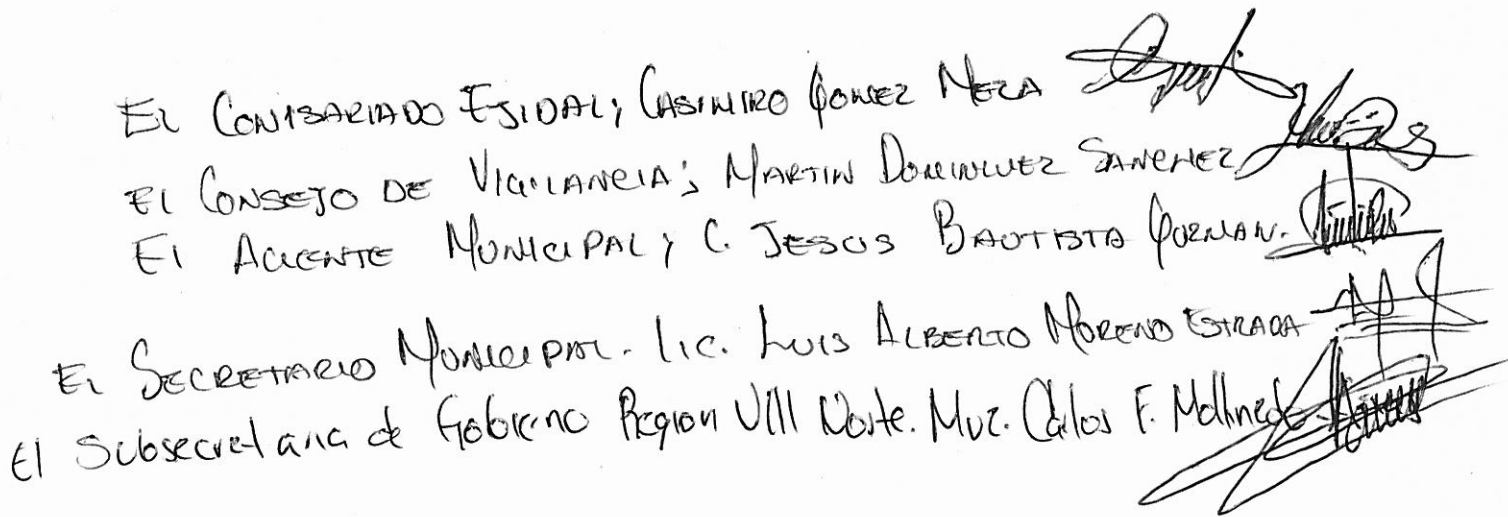 El Comisariado Ejidal; Casimiro Gomez Meza
El Consejo de Vigilancia; Martin Dominguez Sanchez
El Agente Municipal; C. Jesus Bautista Guzman.
El Secretario Municipal. Lic. Luis Alberto Moreno Estrada
El Subsecretaria de Gobierno Region VIII Norte. Muz. Carlos F. Mollinedo